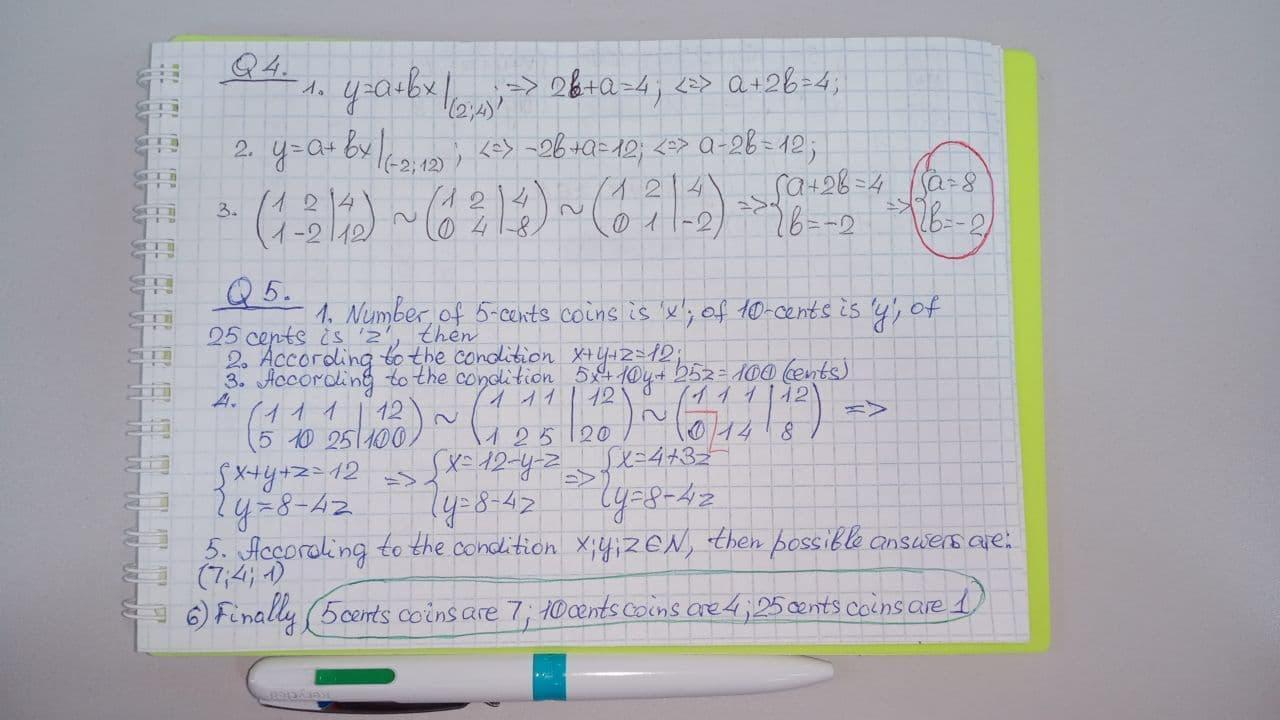 Q4.
1. y=a+bx|(2;4); => 2b+a=4; <=> a+2b=4;
2. y=a+bx|(-2;12); <=> -2b+a=12; <=> a-2b=12;
3. (1 2|4 ~ (1 2|4 ~ (1 2|4 => {a+2b=4 => {a=8
1 -2|12) 0 4|-8) 0 1|-2) b=-2 b=-2
Q5.
1. Number of 5-cents coins is 'x'; of 10-cents is 'y', of
25 cents is 'z', then
2. According to the condition x+y+z=12;
3. According to the condition 5x+10y+25z=100 (cents)
4. (1 1 1|12 ~ (1 1 1|12 ~ (1 1 1|12 =>
5 10 25|100) 1 2 5|20) 0 1 4|8)
{x+y+z=12 => {x=12-y-z => {x=4+3z
y=8-4z y=8-4z y=8-4z
5. According to the condition x;y;z∈N, then possible answers are:
(7;4;1)
6) Finally, 5cents coins are 7; 10cents coins are 4; 25cents coins are 1